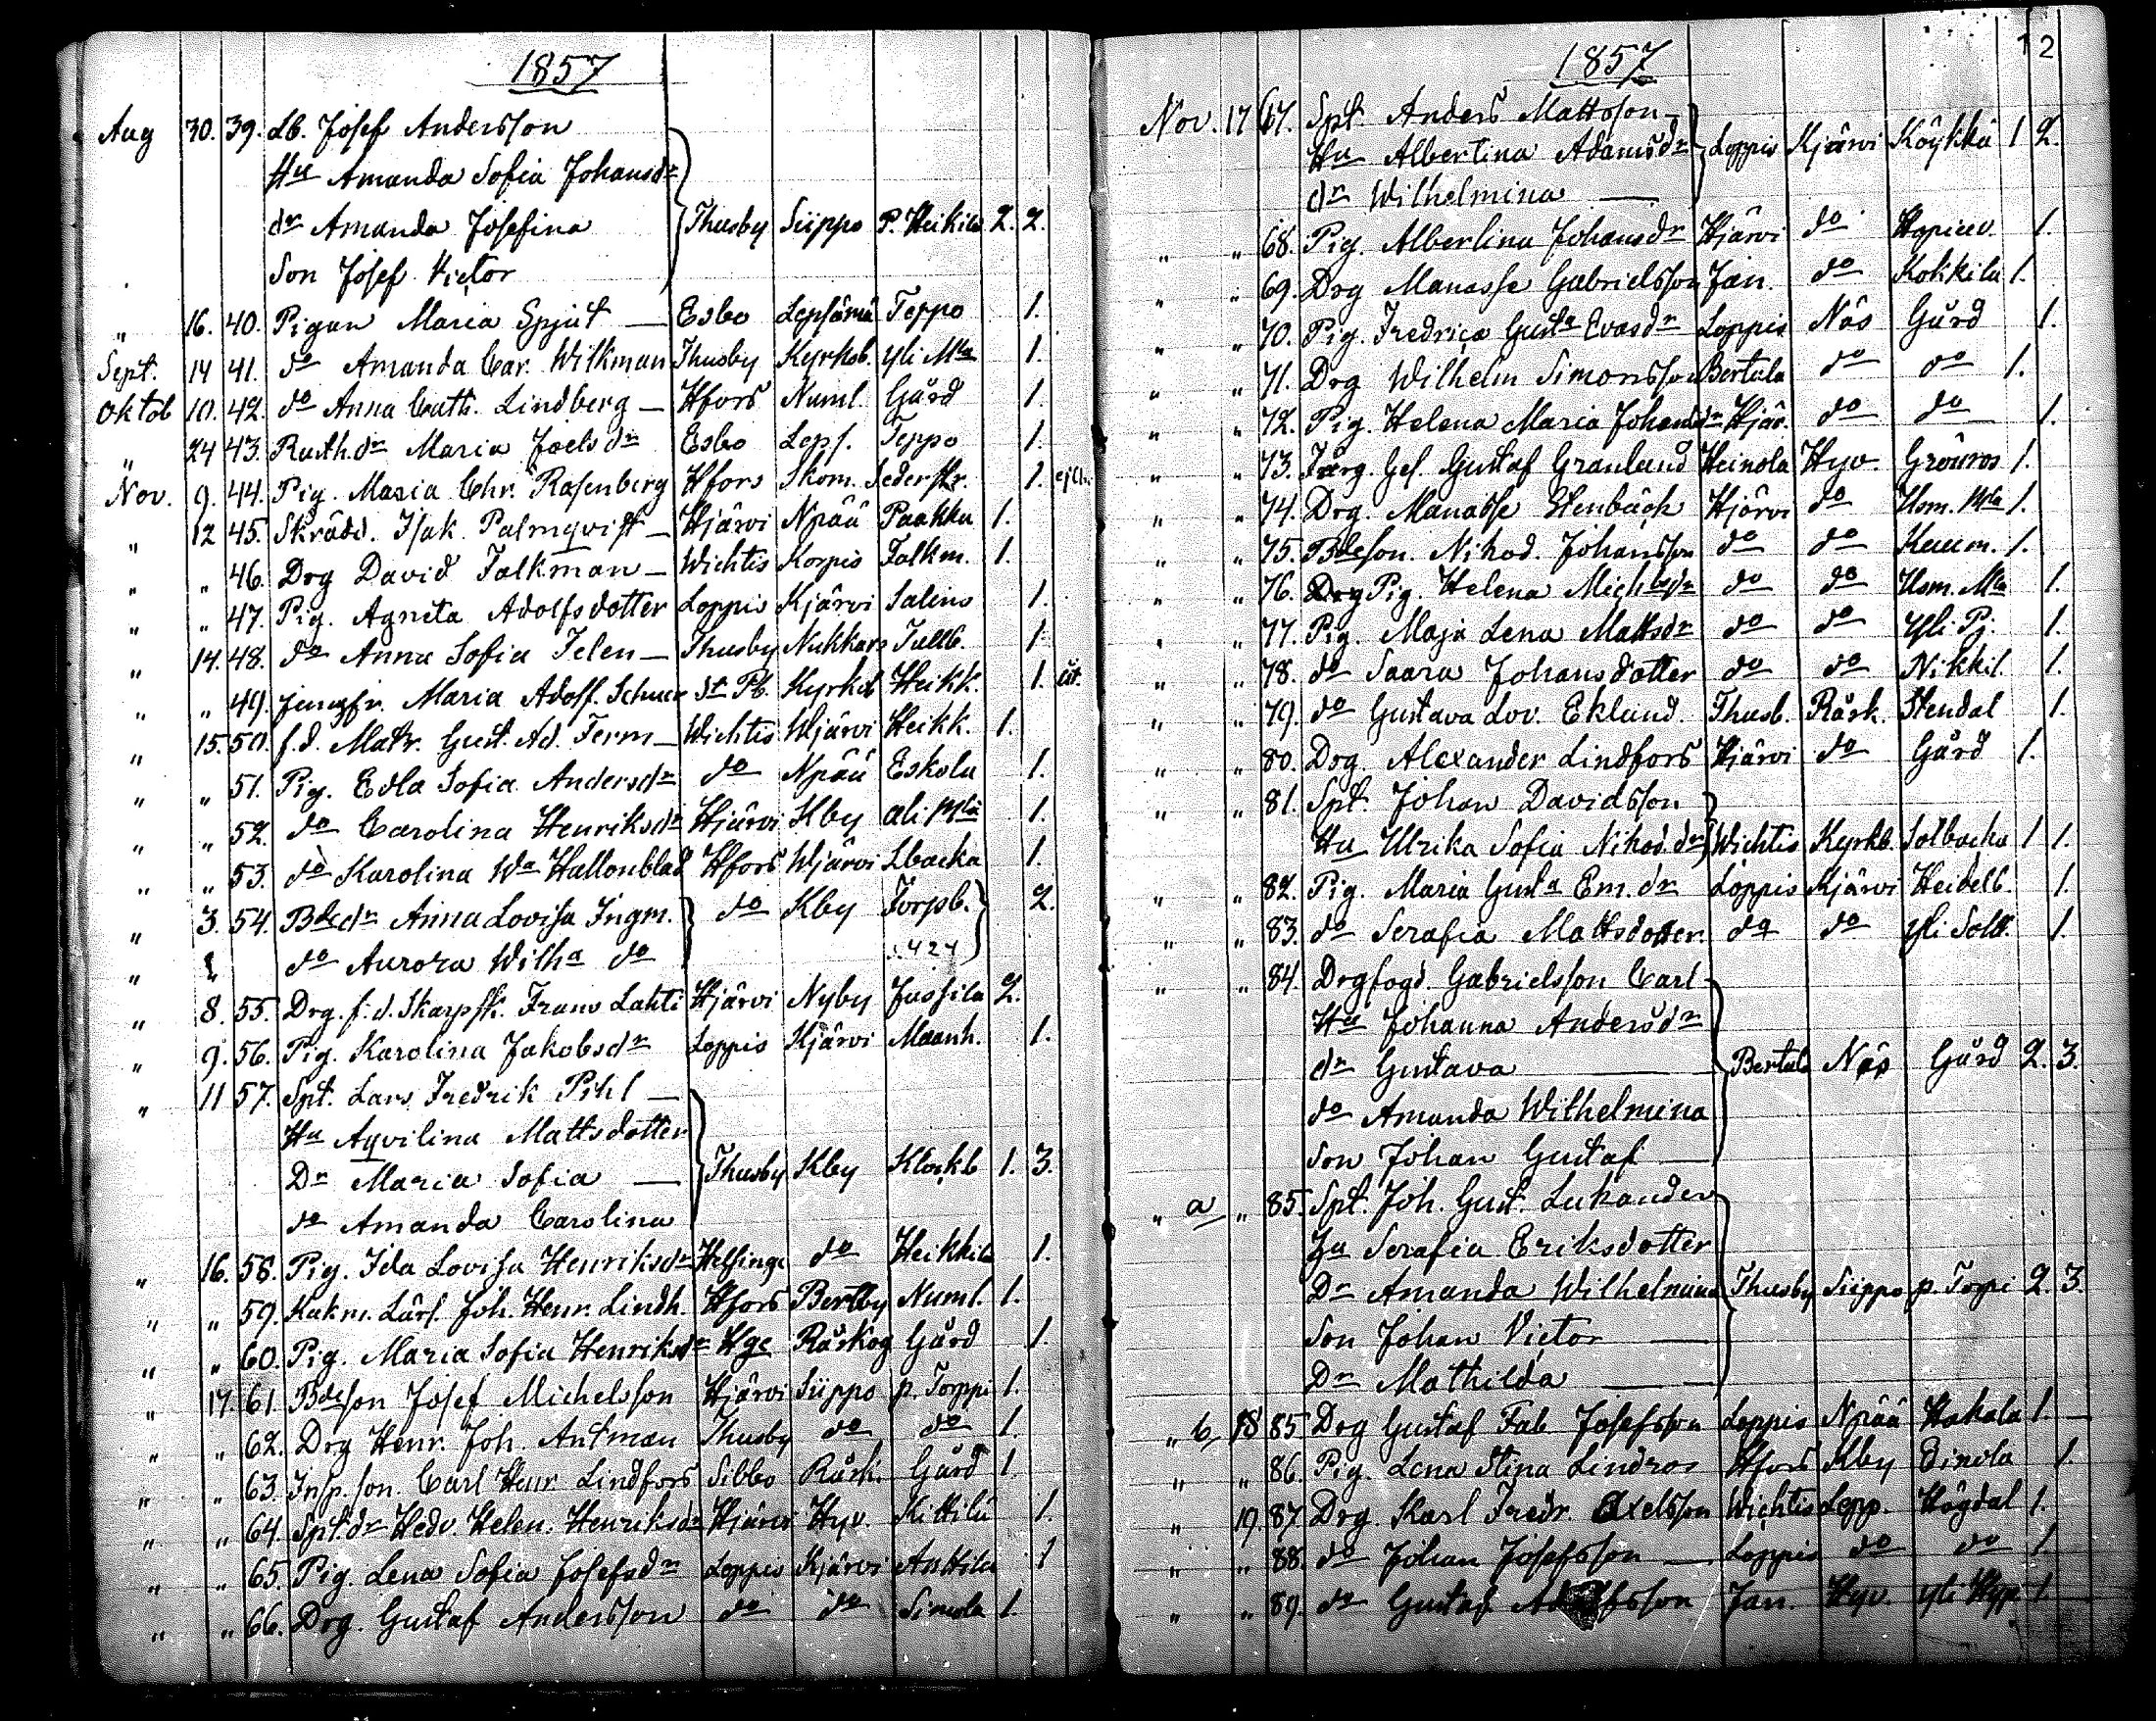 1857
Aug 30. 39. Lb. Josef Andersson
Hu Amanda Sofia Johansdr
dr Amanda Josefina Thusby Siippo P. Heikilä 2. 2.
Son Josef Victor
" 16. 40. Pigan Maria Spjut — Esbo Lepsämä Teppo 1.
Sept. 14 41. do Amanda Car. Wilkman Thusby Kyrkob. yli Mla 1.
Oktob 10. 42. do Anna Cath. Lindberg — Hfors Numl. Gård 1.
" 24 43. Rusth.dr Maria Joelsdr Esbo Leps. Teppo 1.
Nov. 9. 44. Pig. Maria Chr. Rosenberg Hfors Skom. Sederstr. 1.
" 12 45. Skrädd. Isak Palmqvist — Hjärvi Npää Paakku 1.
" " 46. Drg David Falkman — Wichtis Korpis Falkm. 1.
" " 47. Pig. Agneta Adolfsdotter Loppis Kjärvi Salens 1.
" 14. 48. do Anna Sofia Telen — Thusby Nukkars Tullb. 1
" " 49. Jungfr. Maria Adolf. St Pb. Kyrkob Heikk. 1.
" 15. 50. f.d. Matr. Gust. Ad. Ferm — Wichtis Wjärvi Heikk. 1.
" " 51. Pig. Edla Sofia Andersdr do Npää Eskola 1.
" " 52. do Carolina Henriksdr Hjärvi Kby ali Mlä 1.
" " 53. do Karolina Wa Hallonblad Hfors Wjärvi Lbacka 1.
" 3. 54. Bdedr Anna Lovisa Ingm. do Kby Torpb. 2.
" " do Aurora Wilha do s. 424
" 8. 55. Drg. f.d. Skarpsk. Frans Lahti Hjärvi Nyby Jussila 2.
" 9. 56. Pig. Karolina Jakobsdr Loppis Kjärvi Maanh. 1.
" 11 57. Spt. Lars Fredrik Pihl —
Hu Aqvilina Mattsdotter
Dr Maria Sofia — Thusby Kby Klockb 1. 3.
do Amanda Carolina
" 16. 58. Pig. Ida Lovisa Henriksdr Helsinge do Heikkilä 1.
" " 59. Kakm. Lärl. Joh. Henr. Lindh. Hfors Bertby Numl. 1.
" " 60. Pig. Maria Sofia Henriksdr Hge Råskog Gård 1.
" 17. 61. Bdeson Josef Michelsson Hjärvi Siippo p. Torppi 1.
" " 62. Drg Henr. Joh. Antman Thusby do do 1.
" " 63. Insp. son. Carl Henr. Lindfors Sibbo Råsk. Gård 1.
" " 64. Spt.dr Hedv. Helen. Henriksdr Hjärvi Hyv. Kittilä 1.
" " 65. Pig. Lena Sofia Josefsdr Loppis Kjärvi Anttila 1
" " 66. Drg. Gustaf Andersson do do Simola 1.
12
1857
Nov. 17 67. Spt. Anders Mattsson —
Hu Albertina Adamsdr Loppis Kjärvi Köykkä 1 2.
dr Wilhelmina —
" " 68. Pig. Albertina Johansdr Hjärvi do 1.
" " 69. Drg Manasse Gabrielsson Jan. do Kokkila 1.
" " 70. Pig. Fredrica Gusta Evasdr Loppis Näs Gård 1.
" " 71. Drg Wilhelm Simonsson Bertula do do 1.
" " 72. Pig. Helena Maria Johansdr Hjär. do do 1.
" " 73. Färg. Ges. Gustaf Granlund Heinola Hyv. Grönros 1.
" " 74. Drg. Manasse Stenbäck Hjärvi do Usm. Mla 1.
" " 75. Bdeson. Nikod. Johansson do do Kaum. 1.
" " 76. Drg Pig. Helena Michelsdr do do Usm. Mla 1.
" " 77. Pig. Maja Lena Mattsdr do do Yli Pj. 1.
" " 78. do Saara Johansdotter do do Nikkil. 1.
" " 79. do Gustava Lov. Eklund. Thusb. Råsk. Stendal 1.
" " 80. Drg. Alexander Lindfors Hjärvi do Gård 1.
" " 81. Spt. Johan Davidsson
Hu Ulrika Sofia Nikod.dr Wichtis Kyrkb. Solbacka 1 1.
" " 82. Pig. Maria Gusta Em.dr Loppis Kjärvi Heidelb. 1.
" " 83. do Serafia Mattsdotter. do do yli Solt. 1.
" " 84. Drgfogd. Gabrielsson Carl —
Hu Johanna Andersdr
dr Gustava — Bertula Näs Gård 2. 3.
do Amanda Wilhelmina
Son Johan Gustaf —
" a " 85. Spt. Joh. Gust. Lukander
Hu Serafia Eriksdotter
Dr Amanda Wilhelmina Thusby Siippo p. Torpi 2. 3.
Son Johan Victor —
Dr Mathilda —
" b 18 85 Drg Gustaf Fab Josefsson Loppis Npää Hakala 1. —
" " 86. Pig. Lena Stina Lindros Hfors Kby Einola 1.
" 19. 87. Drg. Karl Fredr. Axelsson Wichtis Lepp. Högdal 1.
" " 88. do Johan Josefsson — Loppis do do 1
" " 89. do Gustaf Adolfsson Jan. Hyv. yli Hyp. 1.